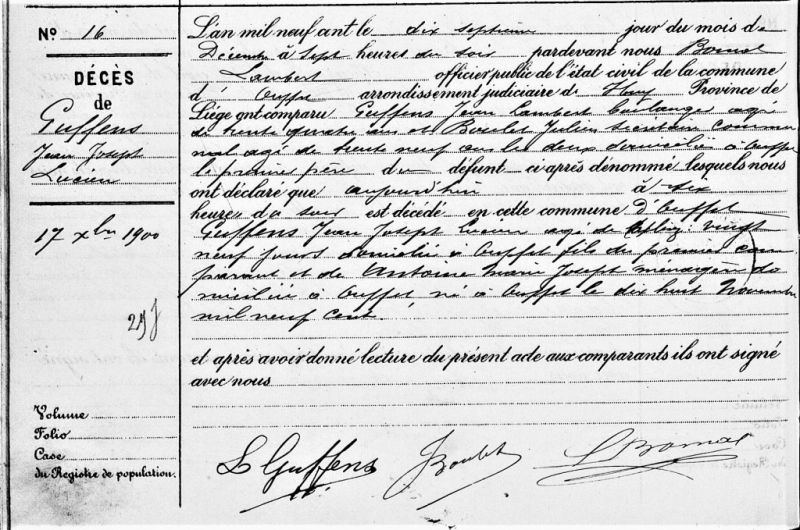 No 16
DÉCÈS
de
Guffens
Jean Joseph
Lucien
17 xbre 1900
29 j
Volume
Folio
Case
du Registre de population.
L'an mil neuf cent le dix septième jour du mois de
Décembre à sept heures du soir pardevant nous Bomal
Lambert officier public de l'état civil de la commune
d' Ouffet arrondissement judiciaire de Huy Province de
Liège ont comparu Guffens Jean Lambert boulanger agé
de trente quatre ans et Boulet Julien secrétaire commu
nal agé de trente neuf ans les deux domiciliés à Ouffet
le premier père du défunt ci après dénommé lesquels nous
ont déclaré que aujourd'hui à six
heures du soir est décédé en cette commune d'Ouffet
Guffens Jean Joseph Lucien agé de vingt
neuf jours domicilié à Ouffet fils du premier com
parant et de Antoine Marie Joseph ménagère do
miciliée à Ouffet, né à Ouffet le dix huit Novembre
mil neuf cent.
et après avoir donné lecture du présent acte aux comparants ils ont signé
avec nous
L Guffens J Boulet L Bomal